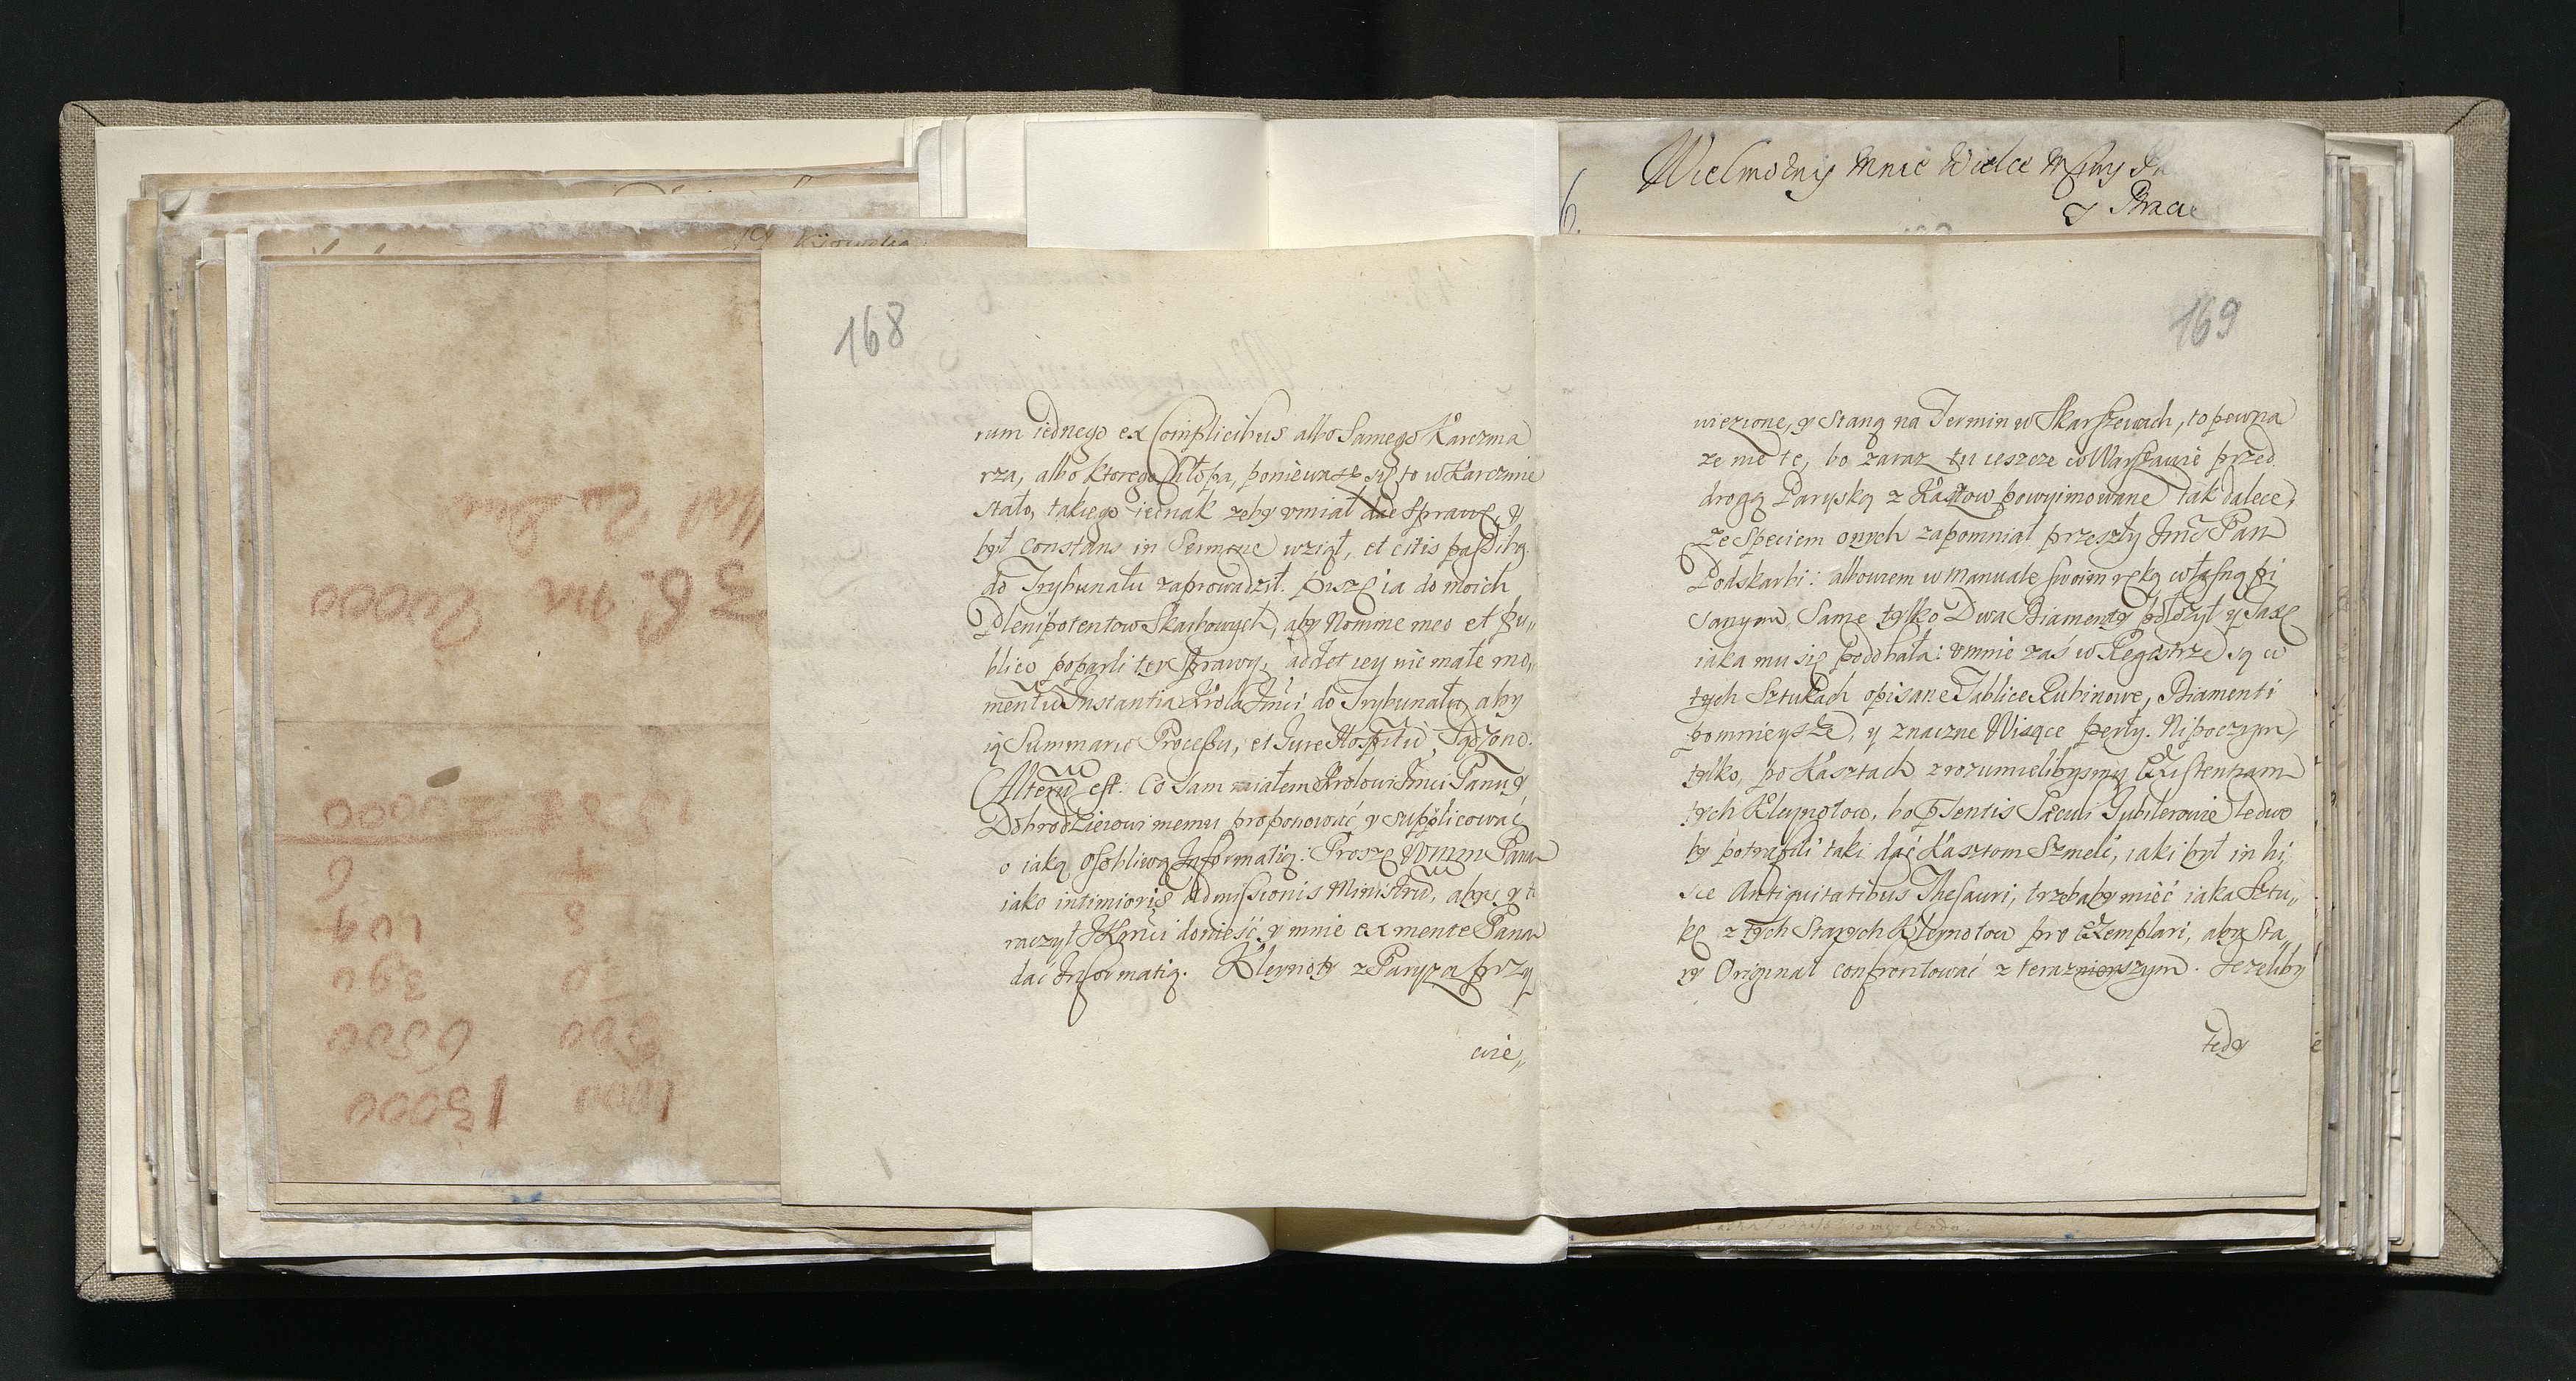 Wielmożny Mnie Wielce
y Bracie
168
rum iednego ex Complicibus albo Samego Karczma
rza, albo ktorego Chłopa, poniewasz się to w Karczmie
stało, takiego iednak zeby umiał dac Sprawę, y
był constans in Sermone wziął, et citis passibq
do Trybunału zaprowadził. Piszę ia do moich
Plenipotentow Skarbowych, aby Nomine meo et pu„
blico poparli tey Sprawy, addet iey nie małe mo„
mentu Instantia Krola Jmci do Trybunału, aby
ią Summario Processu, et Jure Hospitu Sądzono.
Alteru est. Co sam miałem Krolowi Jmci Panu y
Dobrodzieiowi memu proponować y supplicować
o iaką osobliwą Informatią. Proszę WMM Pana
iako intimioris Admissionis Ministru, abyś y to
raczył JKMci donieść, y mnie ex mente Pana
dac Informatią. Kleynoty z Paryza przy
wie„
169
wiezione, y staną na Termin w Skarszewach, to pewna
ze nie te, bo zaraz tu ieszcze w Warszawie przed
drogą Paryską z Kasztow powyimowane tak dalece,
ze Speciem onych zapomniał przeszły Jmć Pan
Podskarbi: albowiem w Manuale swoim ręką własną pi
sanym, Same tylko Dwa Diamenty położył y Taxę
iaka mu się podobała: u mnie zaś w Regestrze są w
tych Sztukach opisane Tablice Rubinowe, Diamenti
pomnieysze, y znaczne Wisące perły. Ni po czym,
tylko, po Kasztach zrozumielibysmy Existentiam
tych Kleynotow, bo Pntis Sæculi Jubilerowie ledwo
by potrafili taki dać Kasztom Szmelc, iaki był in hi
sce Antiquitatibus Thesauri, trzebaby mieć iaka Sztu„
kę z tych Starych Kleynotow pro Exemplari, aby Sta„
ry Originał confrontować z teraznieyszym. Jezeliby
tedy
36. na 20000
20000
404
390
6500
500
1000 13000